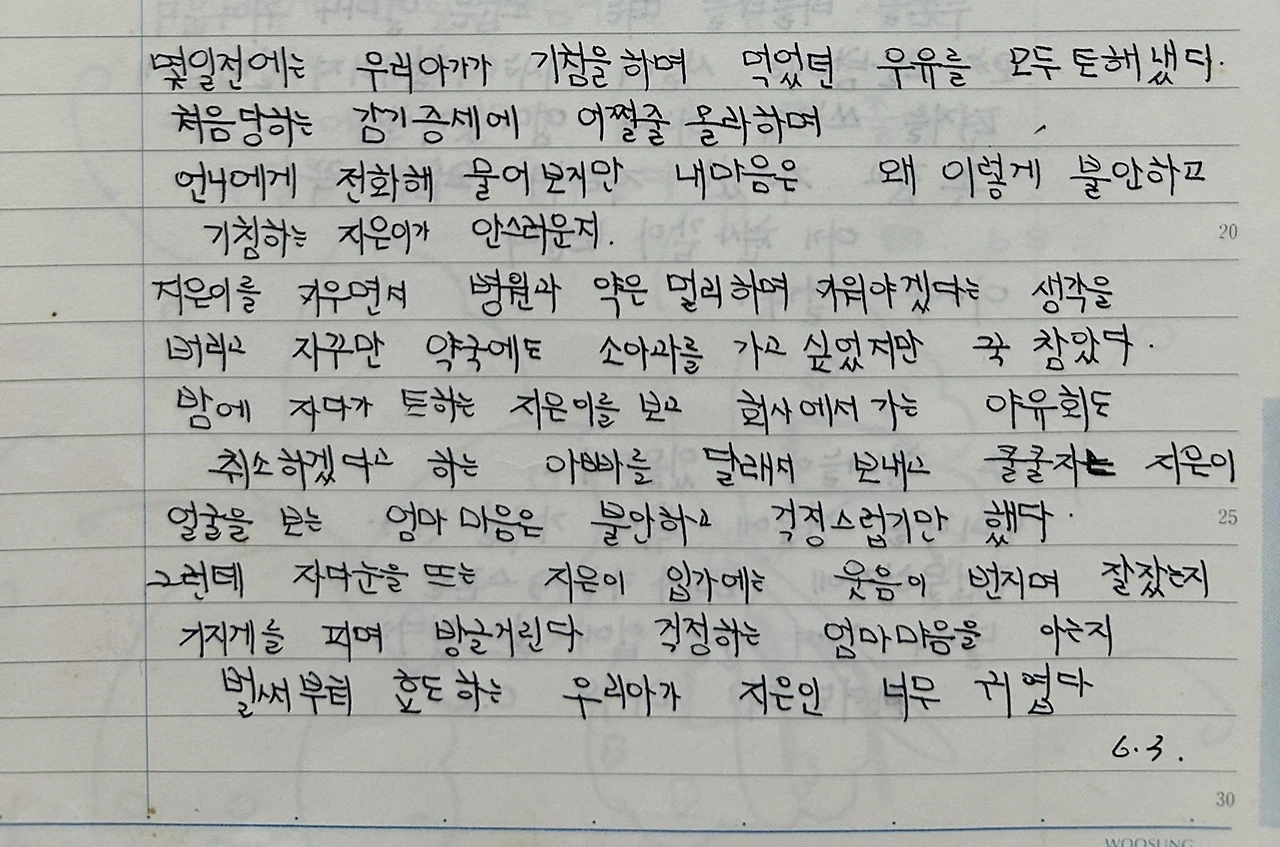 몇일전에는 우리아가가 기침을하며 먹었던 우유를 모두 토해냈다.
처음당하는 감기증세에 어쩔줄 몰라하며
언니에게 전화해 물어보지만 내마음은 왜 이렇게 불안하고
기침하는 지은이가 안스러운지.
20
지은이를 키우면서 병원과 약은 멀리하며 키워야겠다는 생각을
버리고 자꾸만 약국에도 소아과를 가고 싶었지만 꾹 참았다.
밤에 자다가 토하는 지은이를 보고 회사에서 가는 야유회도
취소하겠다고 하는 아빠를 달래서 보내고 쿨쿨자는 지은이
얼굴을 보는 엄마마음은 불안하고 걱정스럽기만 했다.
25
그런데 자다눈을 뜨는 지은이 입가에는 웃음이 번지며 잘잤는지
기지게를 피며 방글거린다 걱정하는 엄마마음을 아는지
벌써부터 효도하는 우리아가 지은인 너무 귀엽다
6.3.
30
WOOSUNG